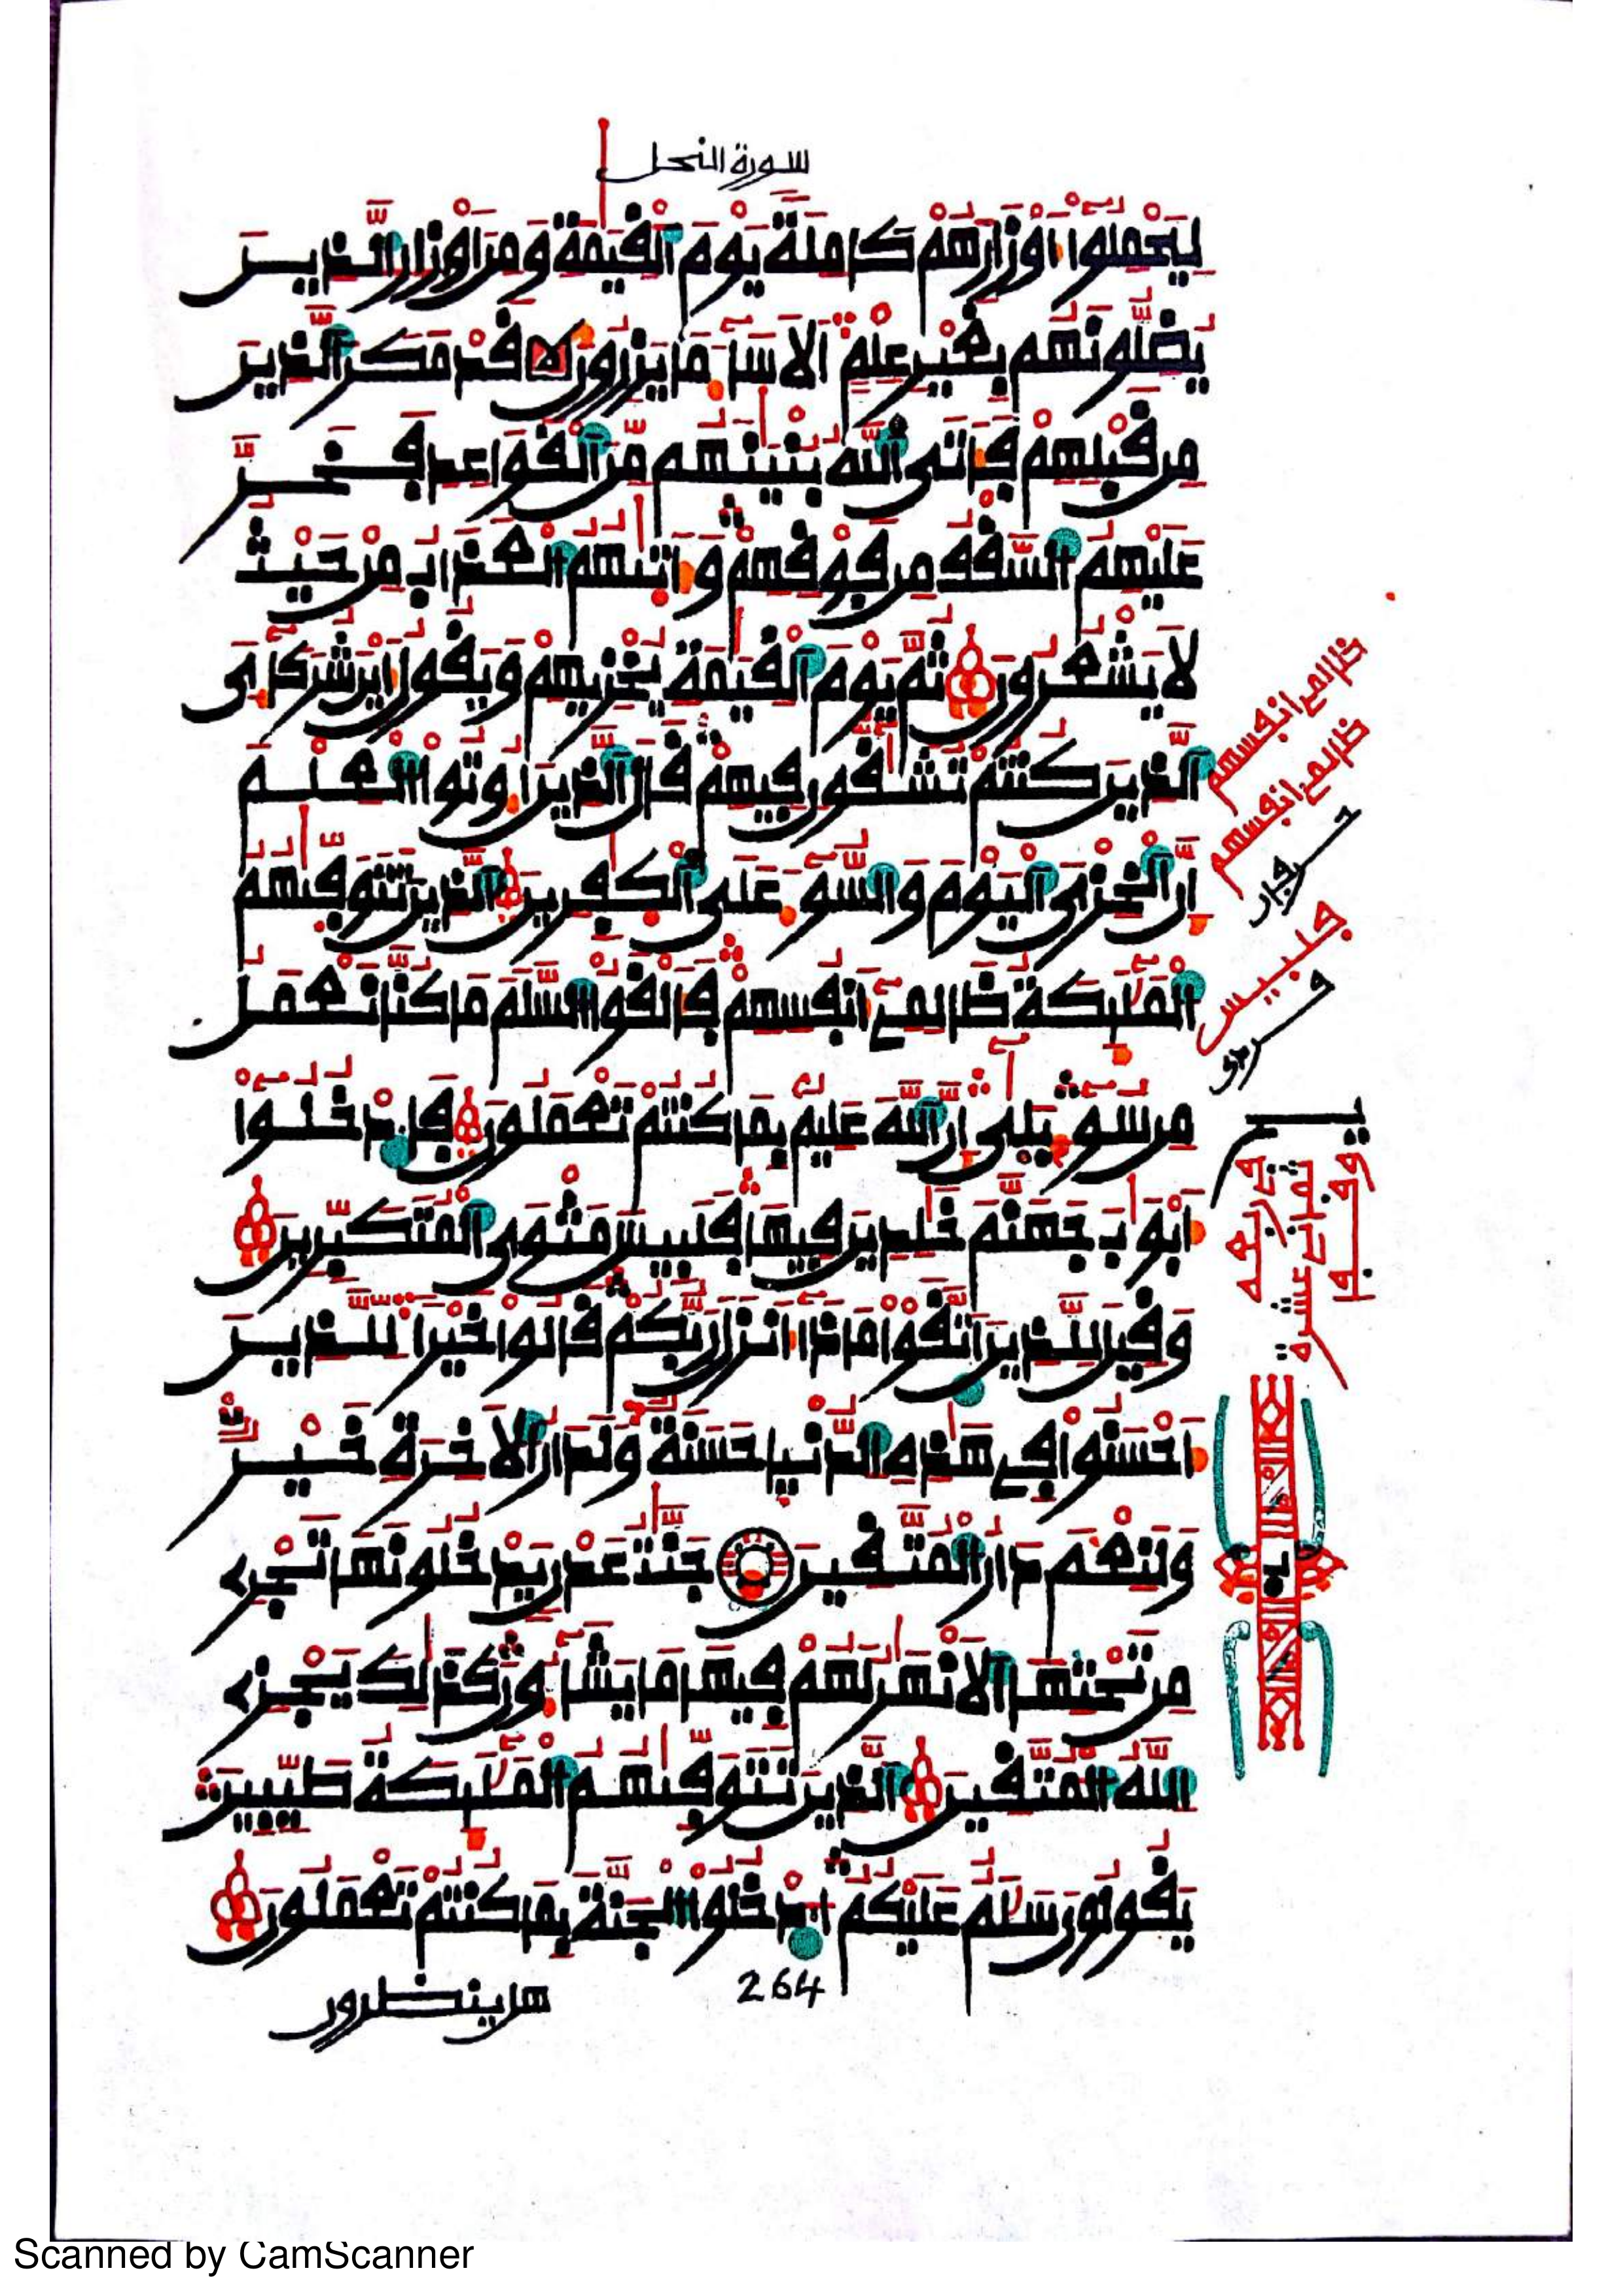 سورة النحل
لِيَحْمِلُوا أَوْزَارَهُمْ كَامِلَةً يَوْمَ ٱلْقِيَٰمَةِ وَمِنْ أَوْزَارِ ٱلَّذِينَ
يُضِلُّونَهُم بِغَيْرِ عِلْمٍ أَلَا سَآءَ مَا يَزِرُونَ قَدْ مَكَرَ ٱلَّذِينَ
مِن قَبْلِهِمْ فَأَتَى ٱللَّهُ بُنْيَٰنَهُم مِّنَ ٱلْقَوَاعِدِ فَخَرَّ
عَلَيْهِمُ ٱلسَّقْفُ مِن فَوْقِهِمْ وَأَتَىٰهُمُ ٱلْعَذَابُ مِنْ حَيْثُ
لَا يَشْعُرُونَ ثُمَّ يَوْمَ ٱلْقِيَٰمَةِ يُخْزِيهِمْ وَيَقُولُ أَيْنَ شُرَكَآءِىَ
ٱلَّذِينَ كُنتُمْ تُشَٰقُّونَ فِيهِمْ قَالَ ٱلَّذِينَ أُوتُوا ٱلْعِلْمَ
إِنَّ ٱلْخِزْىَ ٱلْيَوْمَ وَٱلسُّوٓءَ عَلَى ٱلْكَٰفِرِينَ ٱلَّذِينَ تَتَوَفَّىٰهُمُ
ٱلْمَلَٰٓئِكَةُ ظَالِمِىٓ أَنفُسِهِمْ فَأَلْقَوُا ٱلسَّلَمَ مَا كُنَّا نَعْمَلُ
مِن سُوٓءٍ بَلَىٰٓ إِنَّ ٱللَّهَ عَلِيمٌ بِمَا كُنتُمْ تَعْمَلُونَ فَٱدْخُلُوٓا
أَبْوَٰبَ جَهَنَّمَ خَٰلِدِينَ فِيهَا فَلَبِيسَ مَثْوَى ٱلْمُتَكَبِّرِينَ
وَقِيلَ لِلَّذِينَ ٱتَّقَوْا مَاذَآ أَنزَلَ رَبُّكُمْ قَالُوا خَيْرًا لِّلَّذِينَ
أَحْسَنُوا فِى هَٰذِهِ ٱلدُّنْيَا حَسَنَةٌ وَلَدَارُ ٱلْأَخِرَةِ خَيْرٌ
وَلَنِعْمَ دَارُ ٱلْمُتَّقِينَ جَنَّٰتُ عَدْنٍ يَدْخُلُونَهَا تَجْرِى
مِن تَحْتِهَا ٱلْأَنْهَٰرُ لَهُمْ فِيهَا مَا يَشَآءُونَ كَذَٰلِكَ يَجْزِى
ٱللَّهُ ٱلْمُتَّقِينَ ٱلَّذِينَ تَتَوَفَّىٰهُمُ ٱلْمَلَٰٓئِكَةُ طَيِّبِينَ
يَقُولُونَ سَلَٰمٌ عَلَيْكُمُ ٱدْخُلُوا ٱلْجَنَّةَ بِمَا كُنتُمْ تَعْمَلُونَ
هل ينظرون
264
ظالمى انفسهم
ظالمى انفسهم
فلبيس
Scanned by CamScanner